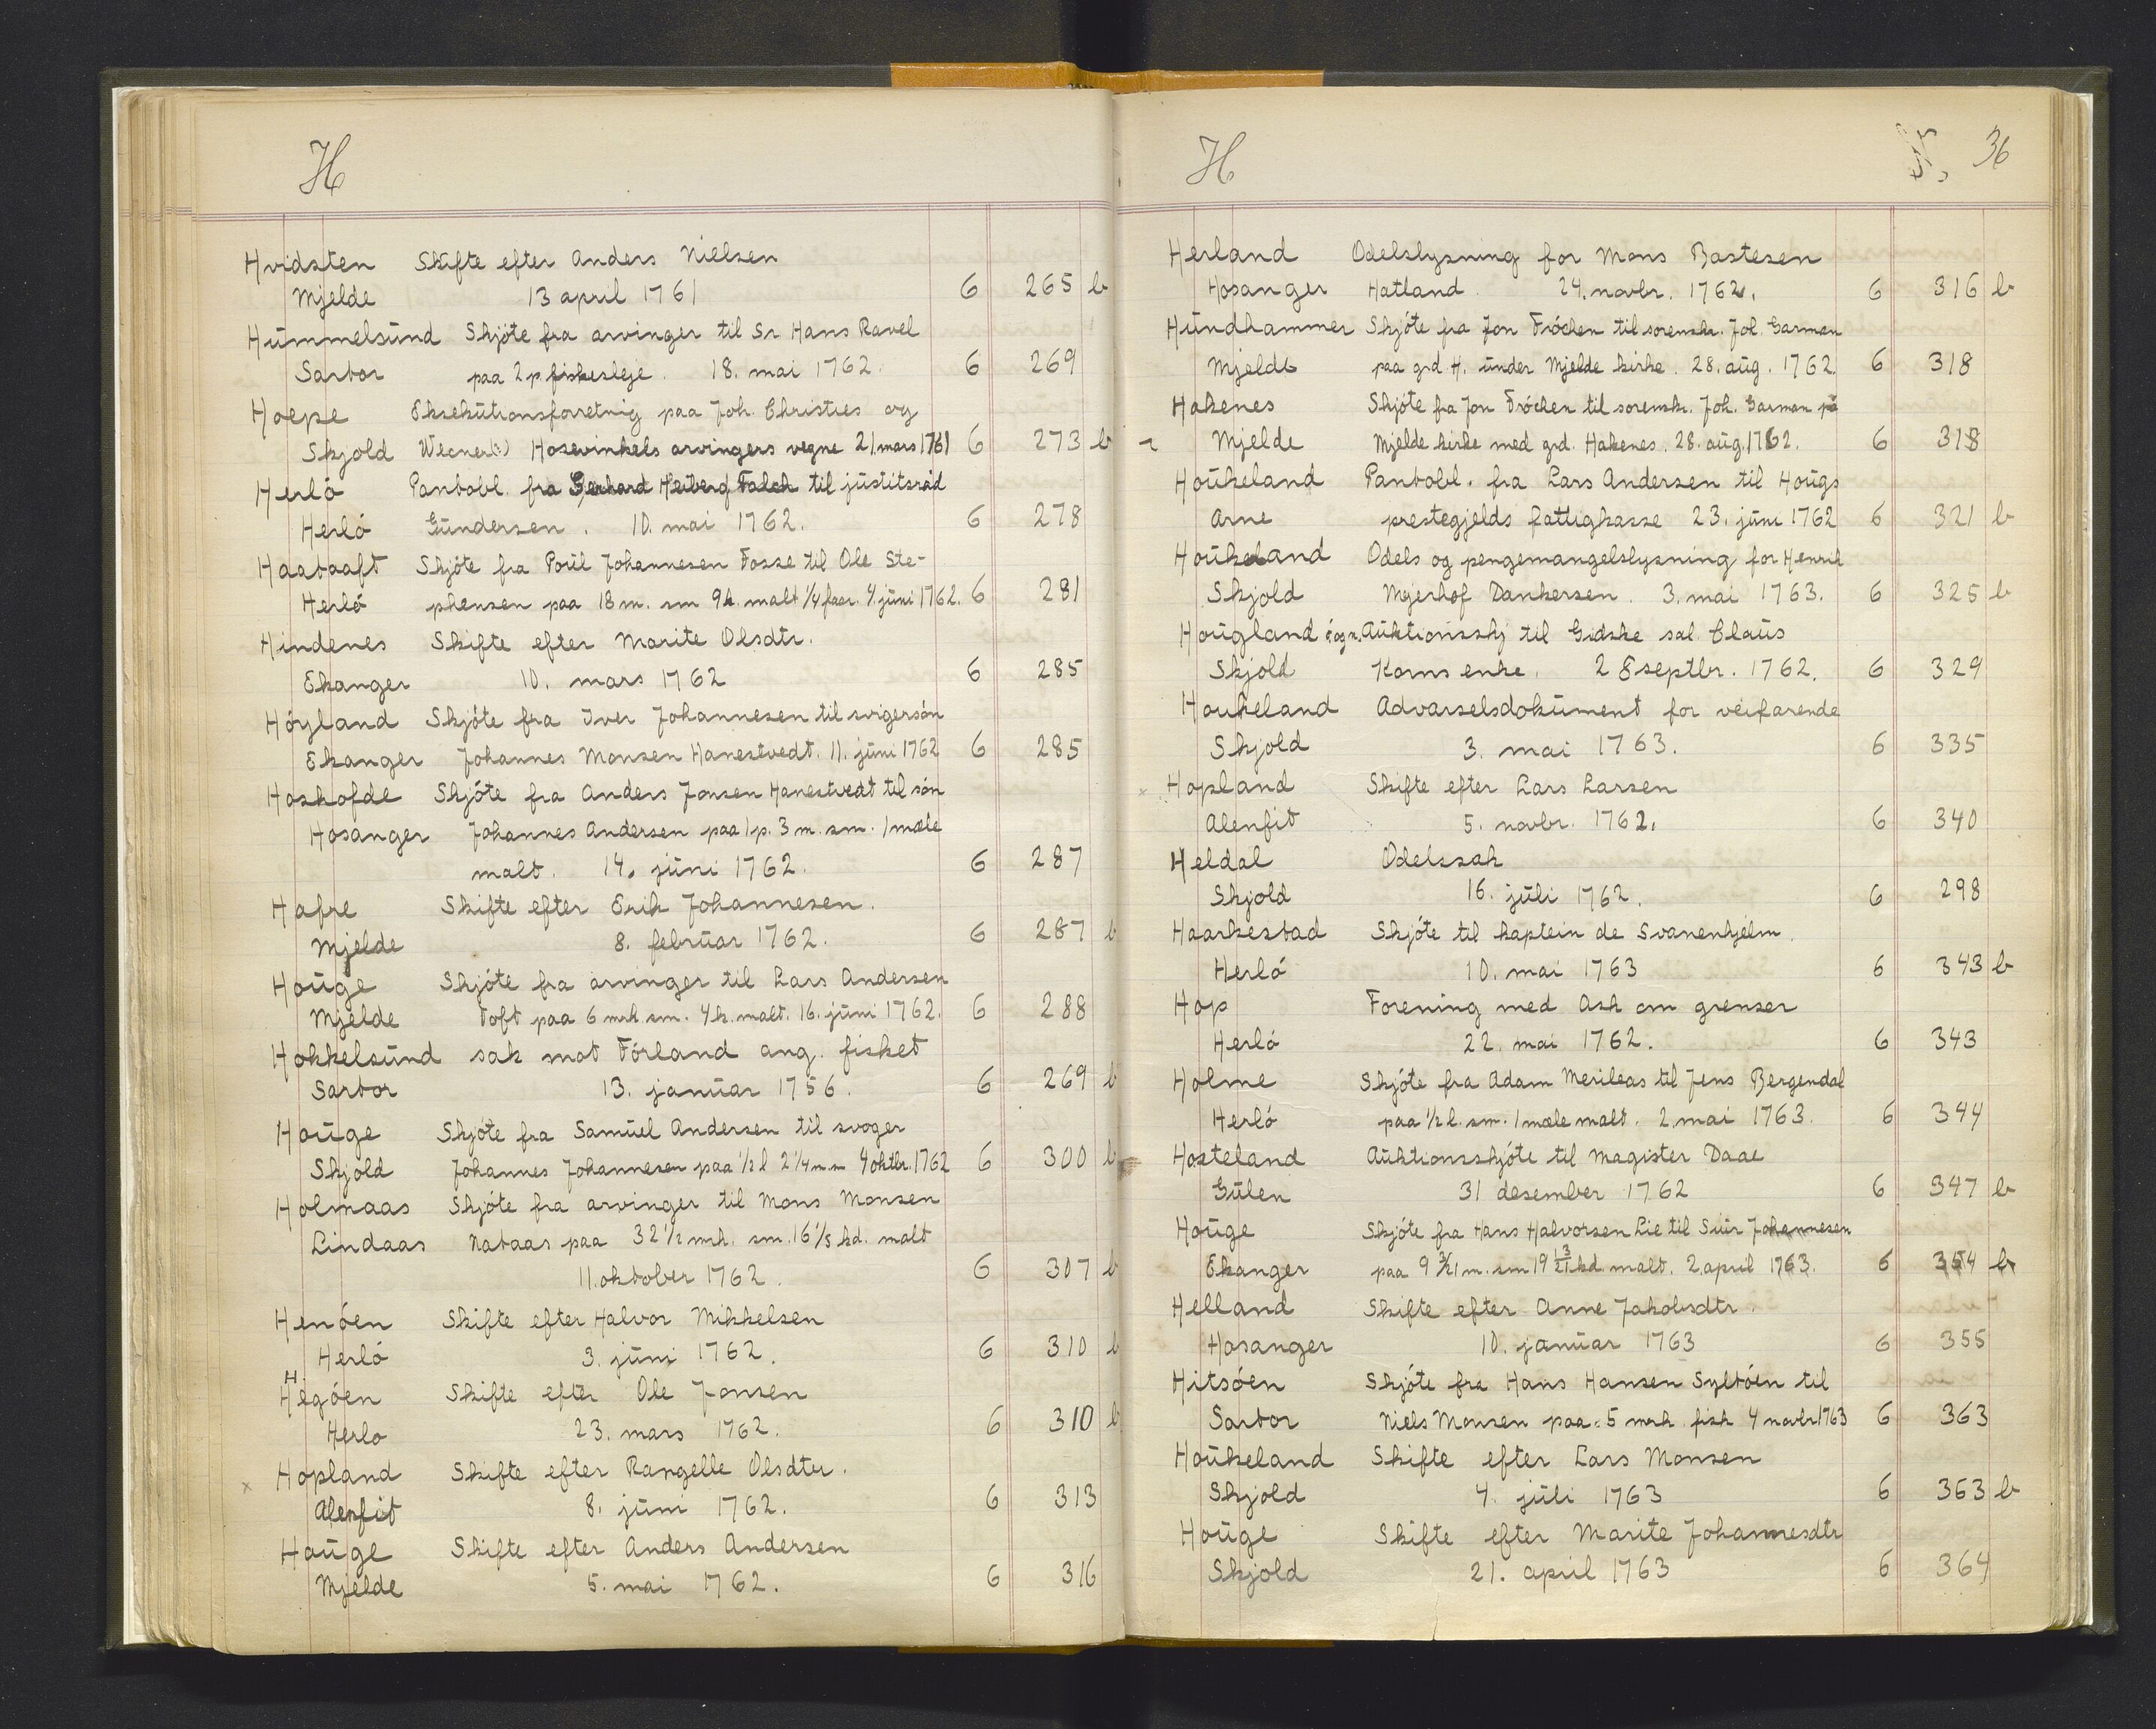 H
Hvidsten Skifte efter Anders Nielsen
Mjelde 13 april 1761 6 265 b
Hummelsund Skjöte fra arvinger til Sr Hans Ravel
Sartor paa 2 p. fiskesleje. 18. mai 1762. 6 269
Hoepe Eksekutionsforretnig paa Joh. Christies og
Skjold Wegner(?) Hosewinkels arvingers vegne 21 mars 1761 6 273 b
Herlö Pantobl. fra Gerhard Heiberg Falch til justitsråd
Herlö Gundersen. 10. mai 1762. 6 278
Haataaft Skjöte fra Poul Johannesen Fosse til Ole Ste-
Herlö phensen paa 18 m. sm 9 k. malt 1/4 faar. 4. juni 1762. 6 281
Hindenes Skifte efter Marite Olsdtr.
Ekanger 10. mars 1762 6 285
Höyland Skjöte fra Iver Johannesen til svigersön
Ekanger Johannes Monsen Hanestvedt. 11. juni 1762 6 285
Hoshofde Skjöte fra Anders Jonsen Hanestvedt til sön
Hosanger Johannes Andersen paa 1 p. 3 m. sm. 1 mæle
malt. 14. juni 1762. 6 287
Hafre Skifte efter Erik Johannesen.
Mjelde 8. februar 1762. 6 287 b
Houge Skjöte fra arvinger til Lars Andersen
Mjelde Toft paa 6 mrk sm. 4 k. malt. 16. juni 1762. 6 288
Hokkelsund sak mot Förland ang. fisket
Sartor 13. januar 1756. 6 269 b
Houge Skjöte fra Samuel Andersen til svoger
Skjold Johannes Johannesen paa 1/2 l 2 1/4 m sm 4 oktbr. 1762 6 300 b
Holmaas Skjöte fra arvinger til Mons Monsen
Lindaas Nataas paa 32 1/2 mrk. sm. 16 1/5 kd. malt
11. oktober 1762. 6 307 b
Henöen Skifte efter Halvor Mikkelsen
Herlö 3. juni 1762. 6 310 b
Hegöen Skifte efter Ole Jonsen
Herlo 23. mars 1762. 6 310 b
Hopland Skifte efter Rangelle Olsdtr.
x Alenfit 8. juni 1762. 6 313
Houge Skifte efter Anders Andersen
Mjelde 5. mai 1762. 6 316
H 36
Herland Odelslysning for Mons Bastesen
Hosanger Hatland 24. novbr. 1762. 6 316 b
Hundhammer Skjöte fra Jon Fröchen til sorenskr. Joh. Garman
Mjelde paa grd H. under Mjelde kirke. 28. aug. 1762. 6 318
Hakenes Skjöte fra Jon Fröchen til sorenskr. Joh. Garman på
Mjelde Mjelde kirke med grd. Hakenes. 28. aug. 1762. 6 318
Houkeland Pantobl. fra Lars Andersen til Hougs
Arne prestegjelds fattigkasse 23. juni 1762 6 321 b
Houkeland Odels og pengemangelslysning for Henrik
Skjold Mejerhof Dankersen. 3. mai 1763. 6 325 b
Hougland Auktionsskj til Gidske sal. Claus
Skjold Korns enke. 28 septbr. 1762. 6 329
Houkeland Advarselsdokument for veifarende
Skjold 3. mai 1763. 6 335
x Hopland Skifte efter Lars Larsen
Alenfit 5. novbr. 1762. 6 340
Heldal Odelssak
Skjold 16. juli 1762. 6 298
Haarkestad Skjöte til kaptein de Svanenhjelm.
Herlö 10. mai 1763 6 343 b
Hop Forening med Ask om grenser
Herlö 22. mai 1762. 6 343
Holme Skjöte fra Adam Merileas til Jens Bergendal
Herlö paa 1/2 l. sm. 1 mæle malt. 2. mai 1763. 6 344
Hosteland Auktionsskjöte til Magister Daae
Gulen 31 desember 1762 6 347 b
Houge Skjöte fra Hans Halvorsen Lie til Siur Johannesen
Ekanger paa 9 3/21 m. sm 19 13/21 kd. malt. 2. april 1763. 6 354 b
Helland Skifte efter Anne Jakobsdtr.
Hosanger 10. januar 1763 6 355
Hitsöen Skjöte fra Hans Hansen Syltöen til
Sartor Niels Monsen paa 5 mrk fisk 4 novbr 1763 6 363
Houkeland Skifte efter Lars Monsen
Skjold 4. juli 1763 6 363 b
Houge Skifte efter Marite Johannesdtr
Skjold 21. april 1763 6 364